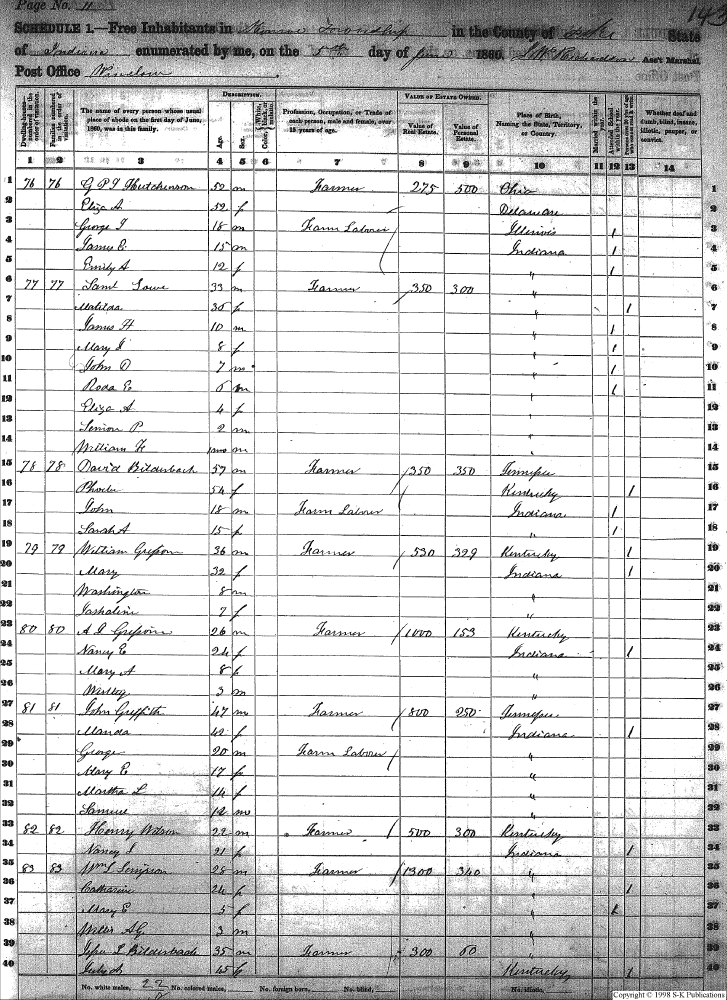 Page No. 11
143
SCHEDULE 1.—Free Inhabitants in Monroe Township in the County of Pike State
of Indiana enumerated by me, on the 5th day of June 1860. Ass't Marshal
Post Office Winslow
Dwelling-houses—numbered in the order of visitation.
Families numbered in the order of visitation.
The name of every person whose usual place of abode on the first day of June, 1860, was in this family.
DESCRIPTION.
Age.
Sex.
Color, White, black, or mulatto.
Profession, Occupation, or Trade of each person, male and female, over 15 years of age.
VALUE OF ESTATE OWNED.
Value of Real Estate.
Value of Personal Estate.
Place of Birth, Naming the State, Territory, or Country.
Married within the year.
Attended School within the year.
Whether deaf and dumb, blind, insane, idiotic, pauper, or convict.
1 2 3 4 5 6 7 8 9 10 11 12 13 14
1 76 76 G P T Hutchenson 52 m Farmer 275 500 Ohio 1
2 Eliza A. 52 f Delaware 2
3 George T 18 m Farm Laborer Illinois / 3
4 James E. 15 m Indiana / 4
5 Emily A 12 f " / 5
6 77 77 Saml Lowe 33 m Farmer 350 300 " 6
7 Matilda 30 f " / 7
8 James H 10 m " / 8
9 Mary J 8 f " / 9
10 John D 7 m " / 10
11 Roda E 6 m " / 11
12 Eliza A 4 f " 12
13 Simion P 2 m " 13
14 William H 1mo m " 14
15 78 78 David Bilderback 57 m Farmer 1350 350 Tennessee 15
16 Phoebe 54 f Kentucky / 16
17 John 18 m Farm Laborer Indiana / 17
18 Sarah A 15 f " / 18
19 79 79 William 36 m Farmer 530 329 Kentucky / 19
20 Mary 32 f Indiana / 20
21 Washington 8 m " 21
22 7 f " 22
23 80 80 26 m Farmer 1000 153 Kentucky 23
24 Nancy E 24 f Indiana / 24
25 Mary A 8 f " 25
26 3 m " 26
27 81 81 John Griffith 47 m Farmer 800 250 Tennessee 27
28 Manda 42 f Indiana / 28
29 George 20 m Farm Laborer " 29
30 Mary E 17 f " 30
31 Martha L 14 f " 31
32 Samuel 12 m " 32
33 82 82 Henry Wilson 22 m Farmer 500 300 Kentucky 33
34 Nancy J 21 f Indiana / 34
35 83 83 Wm L Simpson 28 m Farmer 1300 340 " 35
36 Catharine 24 f " / 36
37 Mary E 5 f " / 37
38 Willis A G 3 m " 38
39 L Bilderback 35 m Farmer 300 60 " 39
40 45 f Kentucky / 40
No. white males, 22 No. colored males, No. foreign born, No. blind, No. idiotic,
Copyright © 1998 S-K Publications